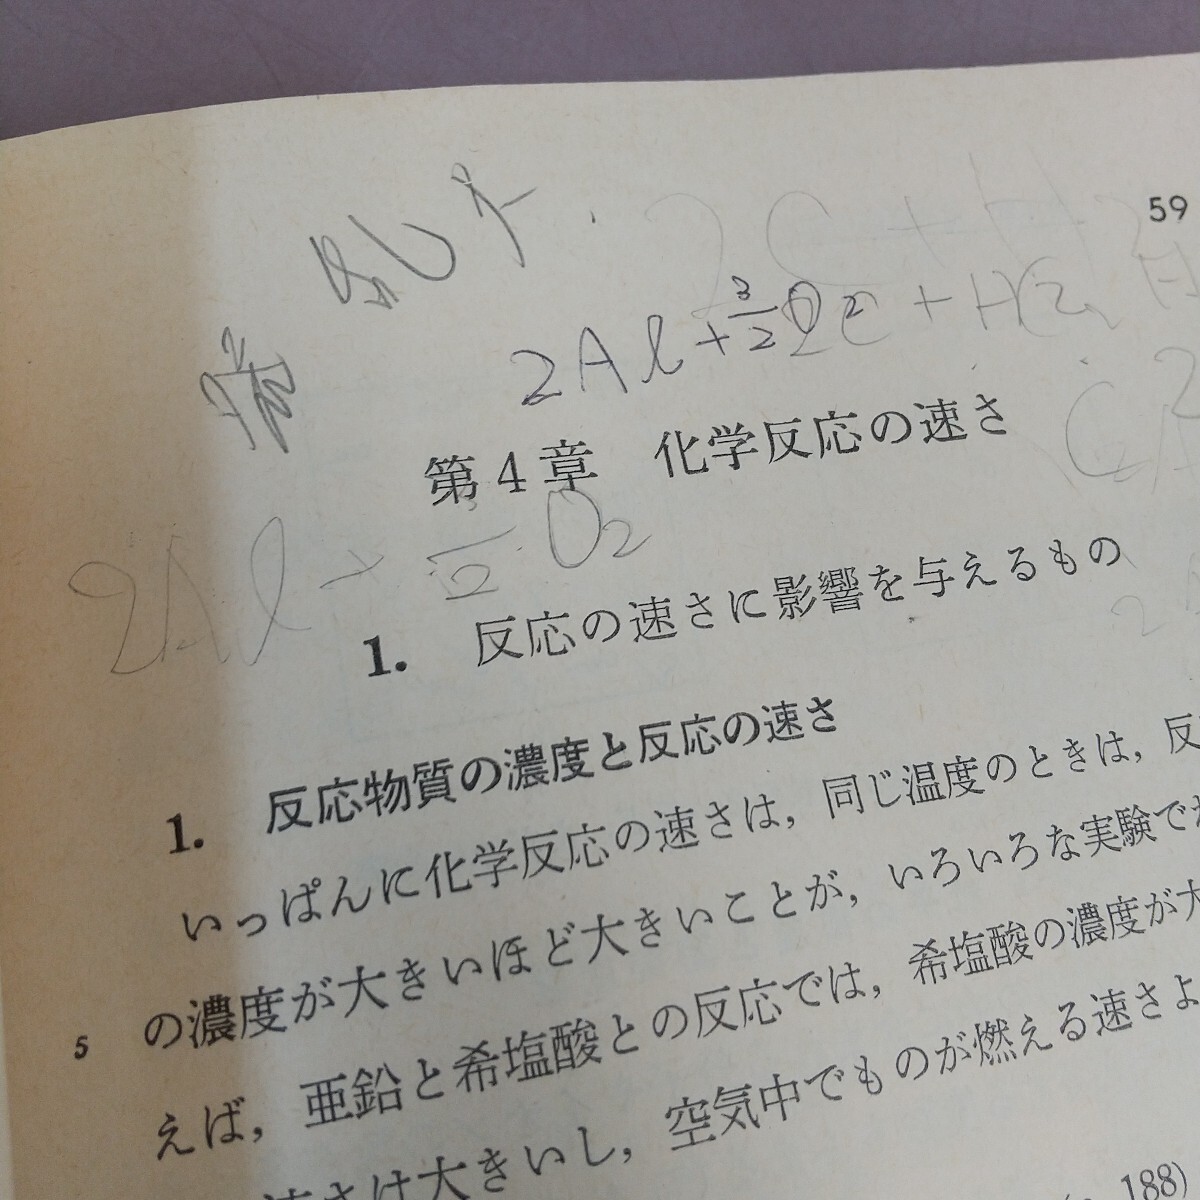 59
2Al + 3/2 O2
第4章 化学反応の速さ
2Al + 2 O2
1. 反応の速さに影響を与えるもの
1. 反応物質の濃度と反応の速さ
いっぱんに化学反応の速さは，同じ温度のときは，反
の濃度が大きいほど大きいことが，いろいろな実験で
5 えば，亜鉛と希塩酸との反応では，希塩酸の濃度が大
速さは大きいし，空気中でものが燃える速さよ
188)